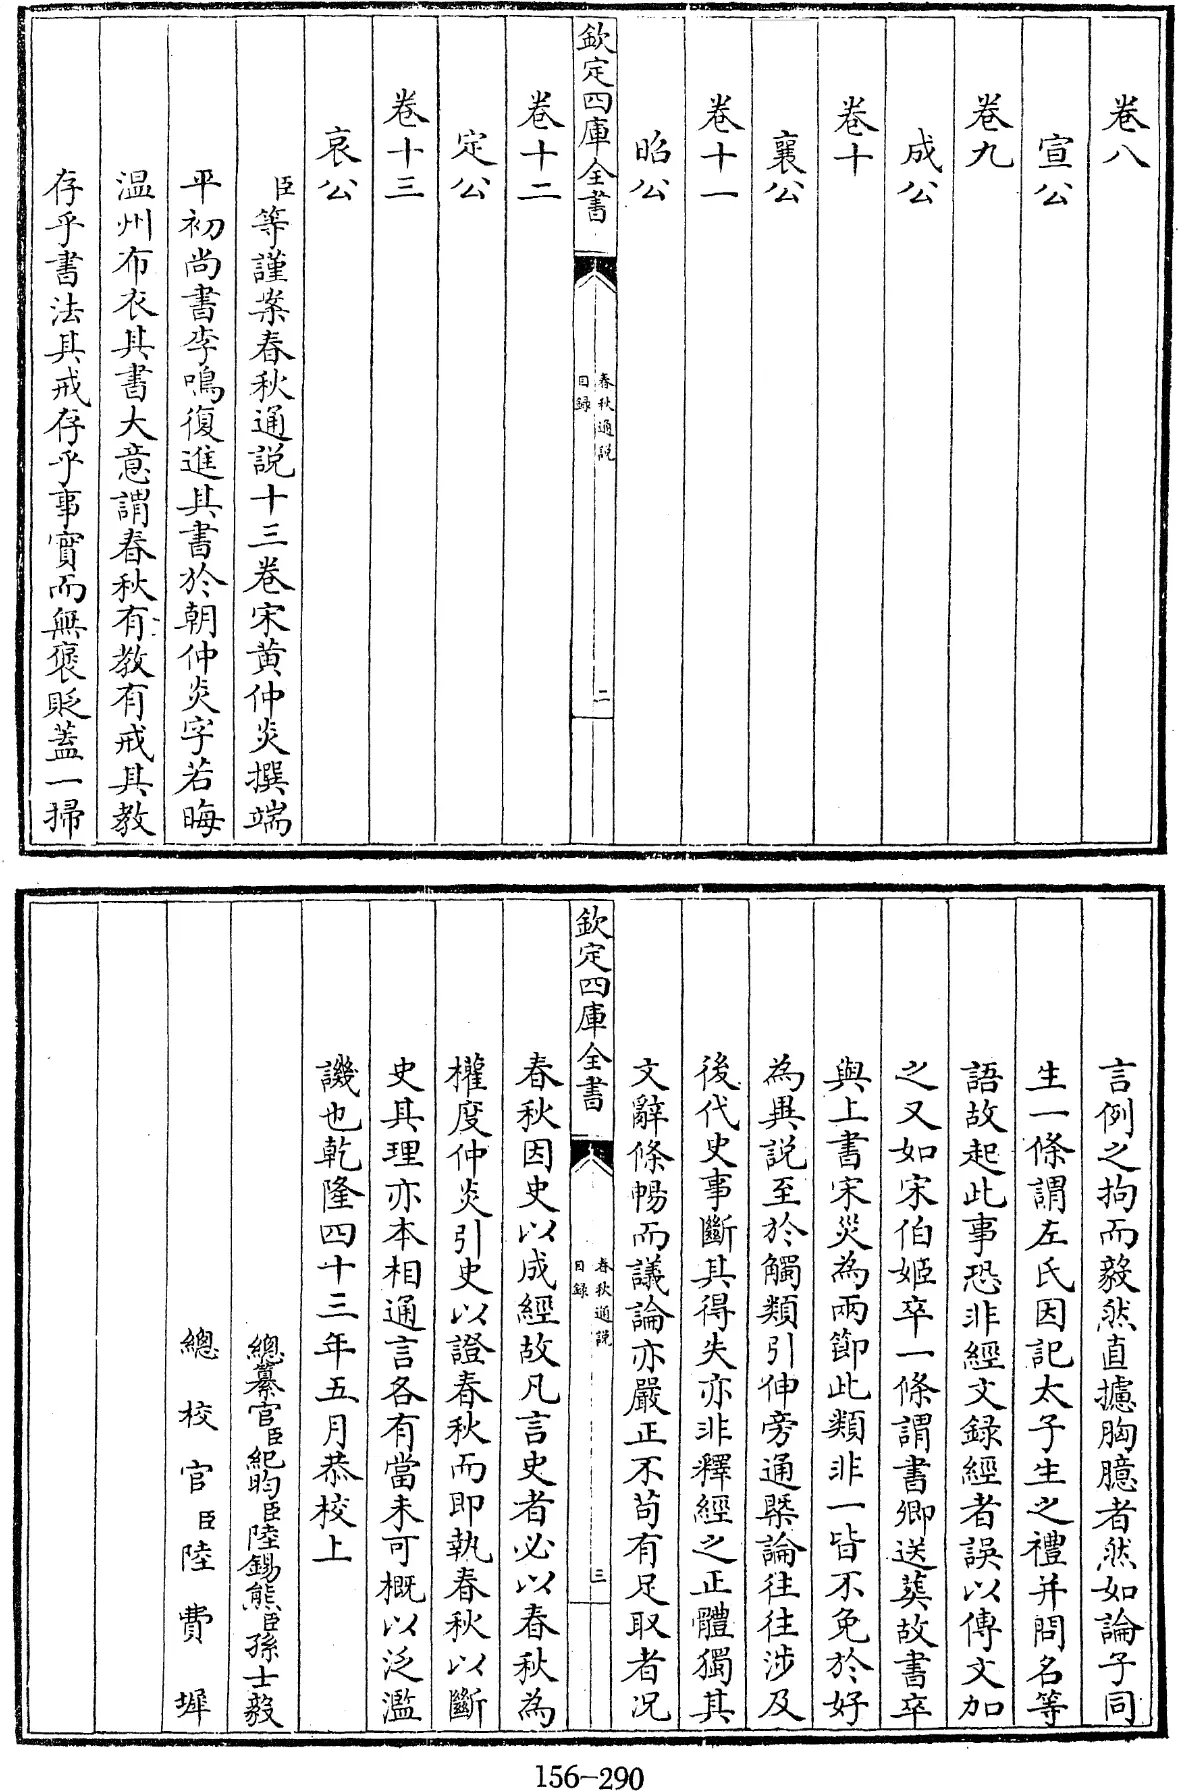 卷八
宣公
卷九
成公
卷十
襄公
卷十一
昭公
欽定四庫全書
春秋通說
目録
二
卷十二
定公
卷十三
哀公
臣等謹案春秋通説十三卷宋黄仲炎撰端
平初尚書李鳴復進其書於朝仲炎字若晦
温州布衣其書大意謂春秋有教有戒其教
存乎書法其戒存乎事實而無褒貶蓋一掃
言例之拘而毅然直攄胸臆者然如論子同
生一條謂左氏因記太子生之禮并問名等
語故起此事恐非經文録經者誤以傳文加
之又如宋伯姬卒一條謂書卿送葬故書卒
與上書宋災為兩節此類非一皆不免於好
為異説至於觸類引伸旁通槩論往往涉及
後代史事斷其得失亦非釋經之正體獨其
文辭條暢而議論亦嚴正不苟有足取者况
欽定四庫全書
春秋通說
目録
三
春秋因史以成經故凡言史者必以春秋為
權度仲炎引史以證春秋而即執春秋以斷
史其理亦本相通言各有當未可概以泛濫
譏也乾隆四十三年五月恭校上
總纂官臣紀昀臣陸錫熊臣孫士毅
總校官臣陸費墀
156-290